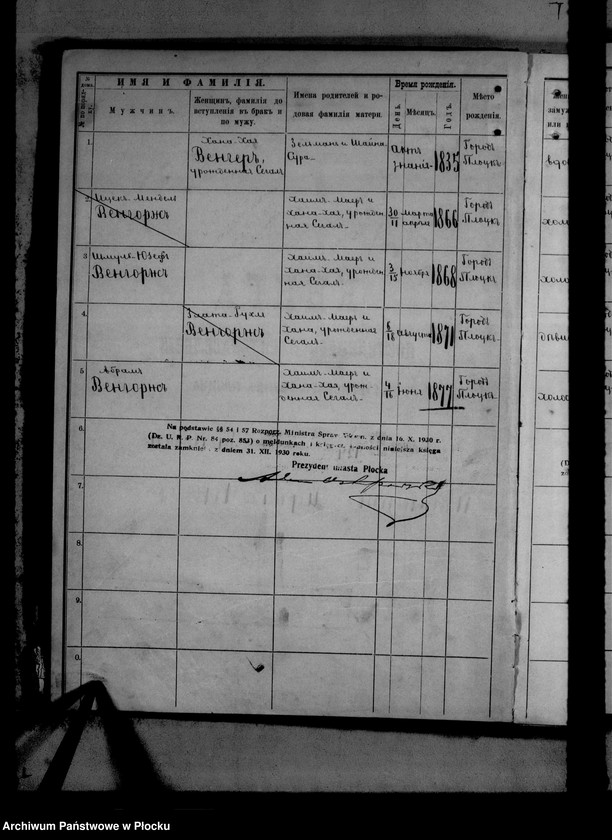 ИМЯ И ФАМИЛІЯ.
Мужчинъ.
Женщинъ, фамилія до
вступленія въ бракъ и
по мужу.
Имена родителей и ро-
довая фамилія матери.
Время рожденія.
День.
Мѣсяцъ.
Годъ.
Мѣсто
рожденія.
1.
Хана-Хая
Венгеръ,
урожденная Сегалъ
Сура
1835
Городъ
Плоцкъ
2.
Ицекъ-Мендель
Венгоржъ
Хаимъ-Маеръ и
Хана-Хая, урожден
ная Сегалъ
30/11
марта
апрѣля
1866
Городъ
Плоцкъ
3
Венгоржъ
Хаимъ-Маеръ и
Хана-Хая, урожден
ная Сегалъ
3/15
ноября
1868
Городъ
Плоцкъ
4.
Венгоржъ
Хаимъ-Маеръ и
Хана, урожденная
Сегалъ
6/18
августа
1871
Городъ
Плоцкъ
5
Абрамъ
Венгоржъ
Хаимъ-Маеръ и
Хана-Хая, урож-
денная Сегалъ
4/16
іюня
1877
Городъ
Плоцкъ
6.
Na podstawie §§ 54 i 57 Rozporz. Ministra Spraw Wewn. z dnia 16. X. 1930 r.
(Dz. U. R. P. Nr. 84 poz. 653) o meldunkach i księgach ludności niniejsza księga
została zamknięta z dniem 31. XII. 1930 roku.
Prezydent miasta Płocka
7.
8.
9.
0.
Archiwum Państwowe w Płocku